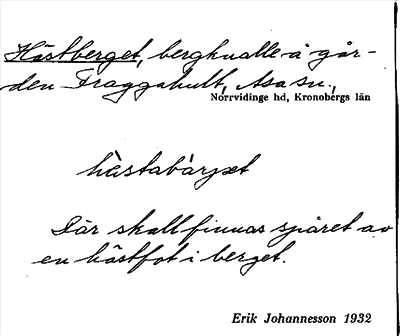 Hästberget, bergknalle å går-
den Fraggahult, Asa sn.,
Norrvidinge hd, Kronobergs län
hästabärjet
Där skall finnas spåret av
en hästfot i berget.
Erik Johannesson 1932